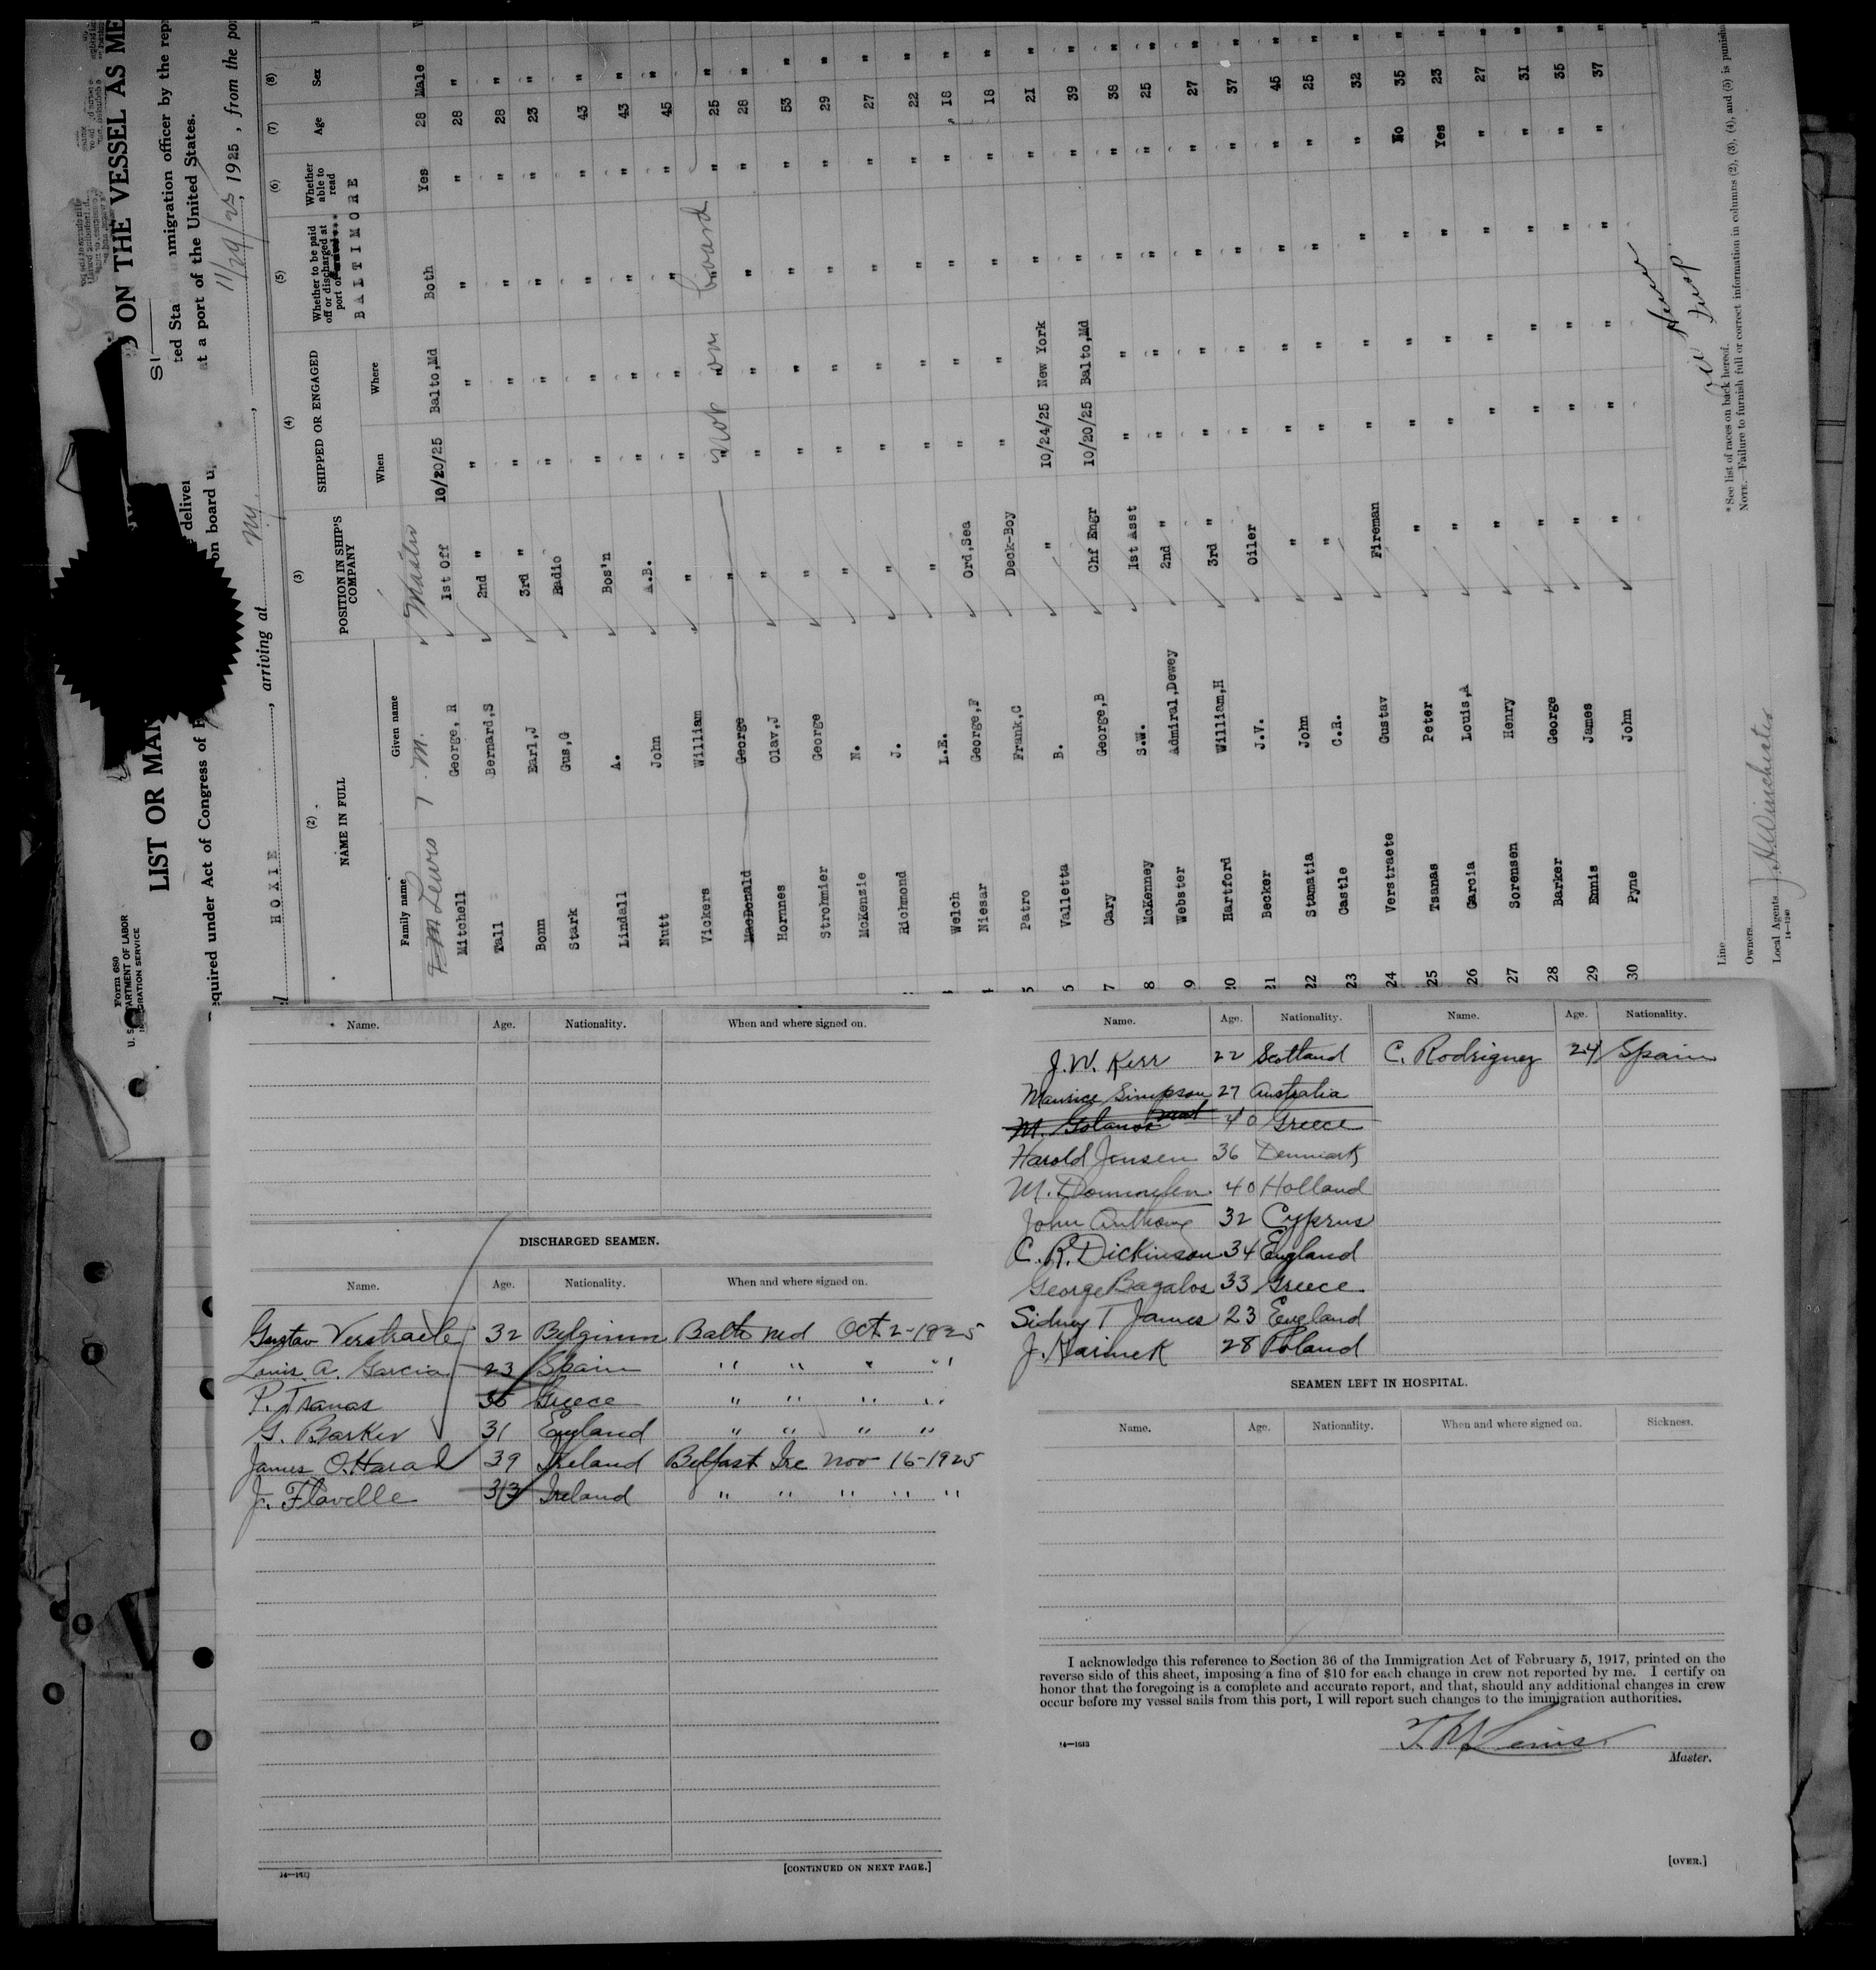 Form 680
U. S. DEPARTMENT OF LABOR
IMMIGRATION SERVICE
LIST OR MAN
ON THE VESSEL AS ME
equired under Act of Congress of
deliver
ted Sta
umigration officer by the rep
on board u
at a port of the United States.
HOXIE, arriving at N.Y., 11/29/25, 1925, from the por
(2) (3) (4) (5) (6) (7) (8)
NAME IN FULL POSITION IN SHIP'S COMPANY SHIPPED OR ENGAGED Whether to be paid off or discharged at port of Whether able to read Age Sex
Family name Given name When Where BALTIMORE
Lewis T. M. Master 10/20/25 Balto,Md Both Yes 28 Male
Mitchell George, R 1st Off " " " " 28 "
Tall Bernard,S 2nd " " " " " 28 "
Bonn Earl,J 3rd " " " " " 23 "
Stark Gus,G Radio " " " " 43 "
Lindall A. Bos'n " " " " 43 "
Nutt John A.B. " " " " 45 "
Vickers William " " " " " 25 "
MacDonald George " not on board " 28 "
Hornnes Olav,J " " " " " 53 "
Strohmier George " " " " " 29 "
McKenzie N. " " " " " 27 "
Richmond J. " " " " " 22 "
Welch L.E. " " " " " 18 "
Niesar George,F Ord,Sea " " " " 18 "
5 Patro Frank,C Deck-Boy " " " " 21 "
6 Valletta B. " 10/24/25 New York " " 39 "
7 Cary George,B Chf Engr 10/20/25 Balto,Md " " 38 "
8 McKenney S.W. 1st Asst " " " " 25 "
9 Webster Admiral,Dewey 2nd " " " " " 27 "
20 Hartford William,H 3rd " " " " " 37 "
21 Becker J.V. Oiler " " " " 45 "
22 Stamatia John " " " " " 25 "
23 Castle C.R. " " " " " 32 "
24 Verstraete Gustav Fireman " " " No 35 "
25 Tsanas Peter " " " " Yes 23 "
26 Garcia Louis,A " " " " " 27 "
27 Sorensen Henry " " " " " 31 "
28 Barker George " " " " " 35 "
29 Ennis James " " " " " 37 "
30 Pyne John " " " " "
Line
Owners
Local Agents J. H. Winchester
14—1240
*See list of races on back hereof.
NOTE.—Failure to furnish full or correct information in columns (2), (3), (4), and (5) is punisha
Name. Age. Nationality. When and where signed on.
DISCHARGED SEAMEN.
Name. Age. Nationality. When and where signed on.
Gustav Verstraete 32 Belgium Balto Md Oct. 2-1925
Louis A. Garcia 23 Spain " " " "
P. Tsanas 35 Greece " " " "
G. Barker 31 England " " " "
James O.Hara 39 Ireland Belfast Ire Nov 16-1925
J. Flavelle 33 Ireland " " " " "
[CONTINUED ON NEXT PAGE.]
Name. Age. Nationality. Name. Age. Nationality.
J. W. Kerr 22 Scotland C. Rodriguez 24 Spain
Maurice Simpson 27 Australia
M. Golanos 40 Greece
Harold Jensen 36 Denmark
M. 40 Holland
John Anthony 32 Cyprus
C. R. Dickinson 34 England
George Bagalos 33 Greece
Sidney T James 23 England
J. Harinek 28 Poland
SEAMEN LEFT IN HOSPITAL.
Name. Age. Nationality. When and where signed on. Sickness.
I acknowledge this reference to Section 36 of the Immigration Act of February 5, 1917, printed on the
reverse side of this sheet, imposing a fine of $10 for each change in crew not reported by me. I certify on
honor that the foregoing is a complete and accurate report, and that, should any additional changes in crew
occur before my vessel sails from this port, I will report such changes to the immigration authorities.
T. M. Lewis
14—1613
Master.
[OVER.]